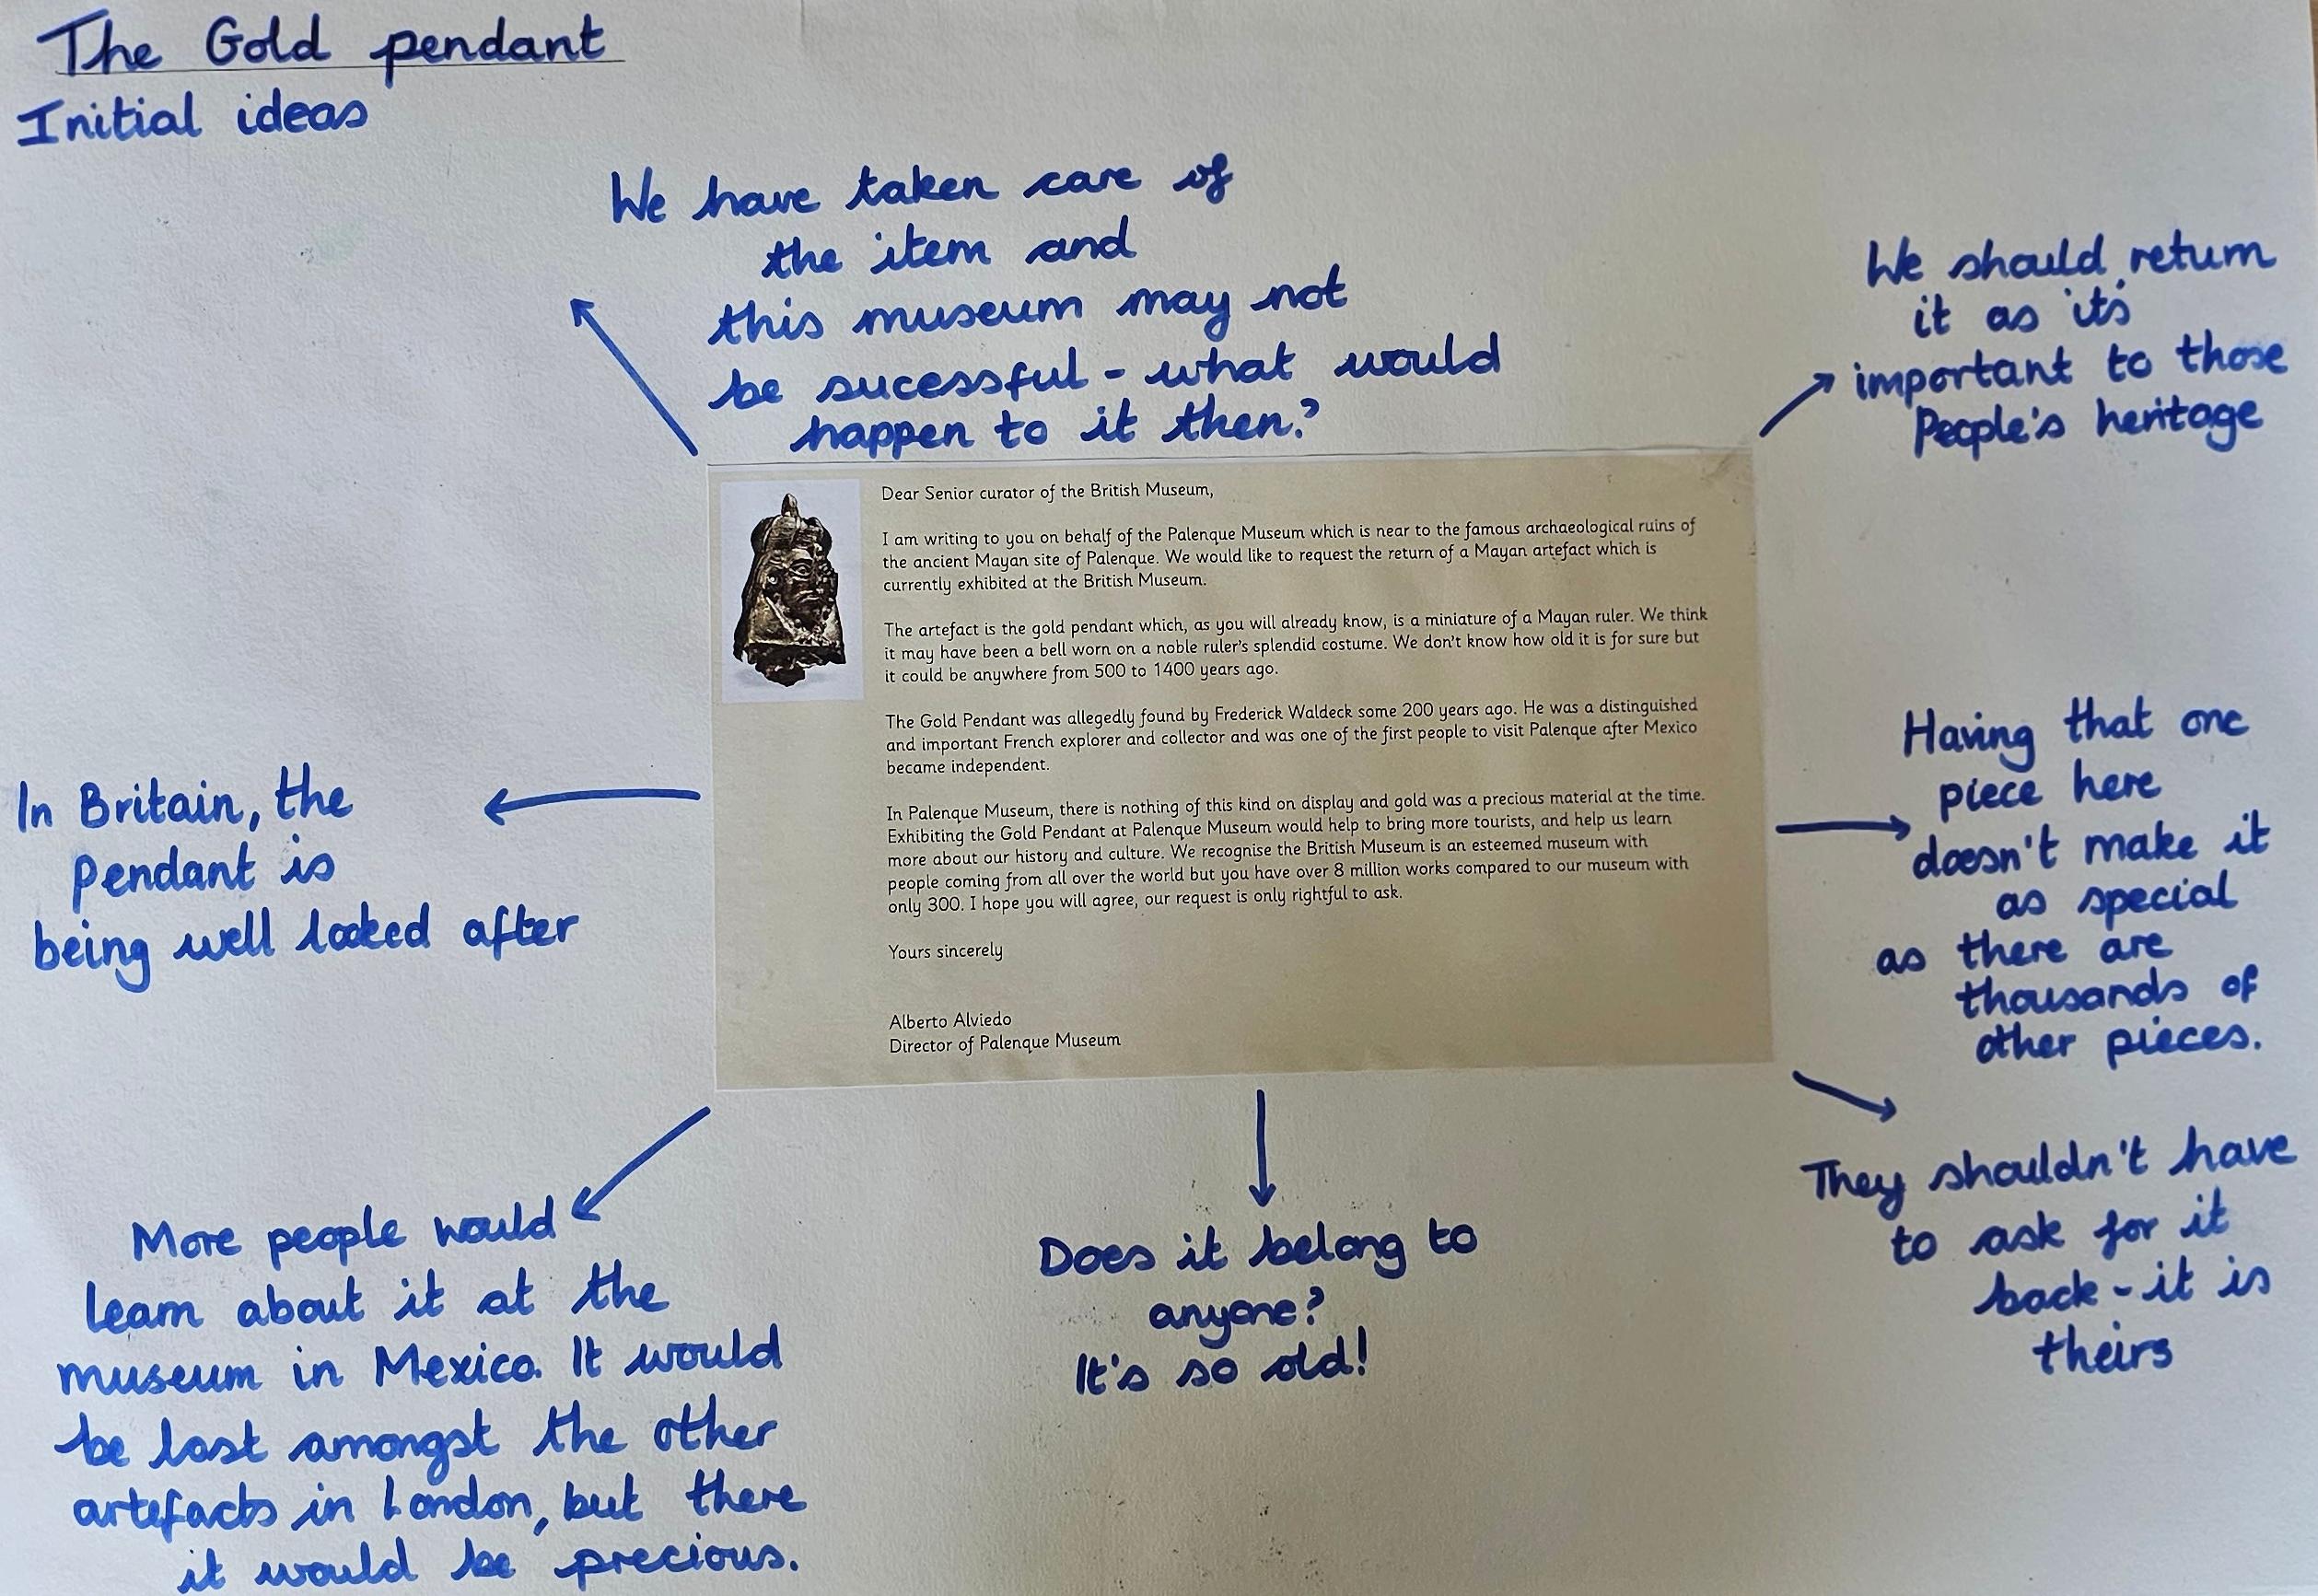 The Gold pendant
Initial ideas
We have taken care of
the item and
this museum may not
be sucessful - what would
happen to it then?
We should return
it as it's
important to those
People's heritage
Dear Senior curator of the British Museum,
I am writing to you on behalf of the Palenque Museum which is near to the famous archaeological ruins of
the ancient Mayan site of Palenque. We would like to request the return of a Mayan artefact which is
currently exhibited at the British Museum.
The artefact is the gold pendant which, as you will already know, is a miniature of a Mayan ruler. We think
it may have been a bell worn on a noble ruler's splendid costume. We don't know how old it is for sure but
it could be anywhere from 500 to 1400 years ago.
The Gold Pendant was allegedly found by Frederick Waldeck some 200 years ago. He was a distinguished
and important French explorer and collector and was one of the first people to visit Palenque after Mexico
became independent.
In Palenque Museum, there is nothing of this kind on display and gold was a precious material at the time.
Exhibiting the Gold Pendant at Palenque Museum would help to bring more tourists, and help us learn
more about our history and culture. We recognise the British Museum is an esteemed museum with
people coming from all over the world but you have over 8 million works compared to our museum with
only 300. I hope you will agree, our request is only rightful to ask.
Yours sincerely
Alberto Alviedo
Director of Palenque Museum
In Britain, the
Pendant is
being well looked after
Having that one
piece here
doesn't make it
as special
as there are
thousands of
other pieces.
They shouldn't have
to ask for it
back - it is
theirs
More people would
learn about it at the
museum in Mexico. It would
be lost amongst the other
artefacts in London, but there
it would be precious.
Does it belong to
anyone?
It's so old!